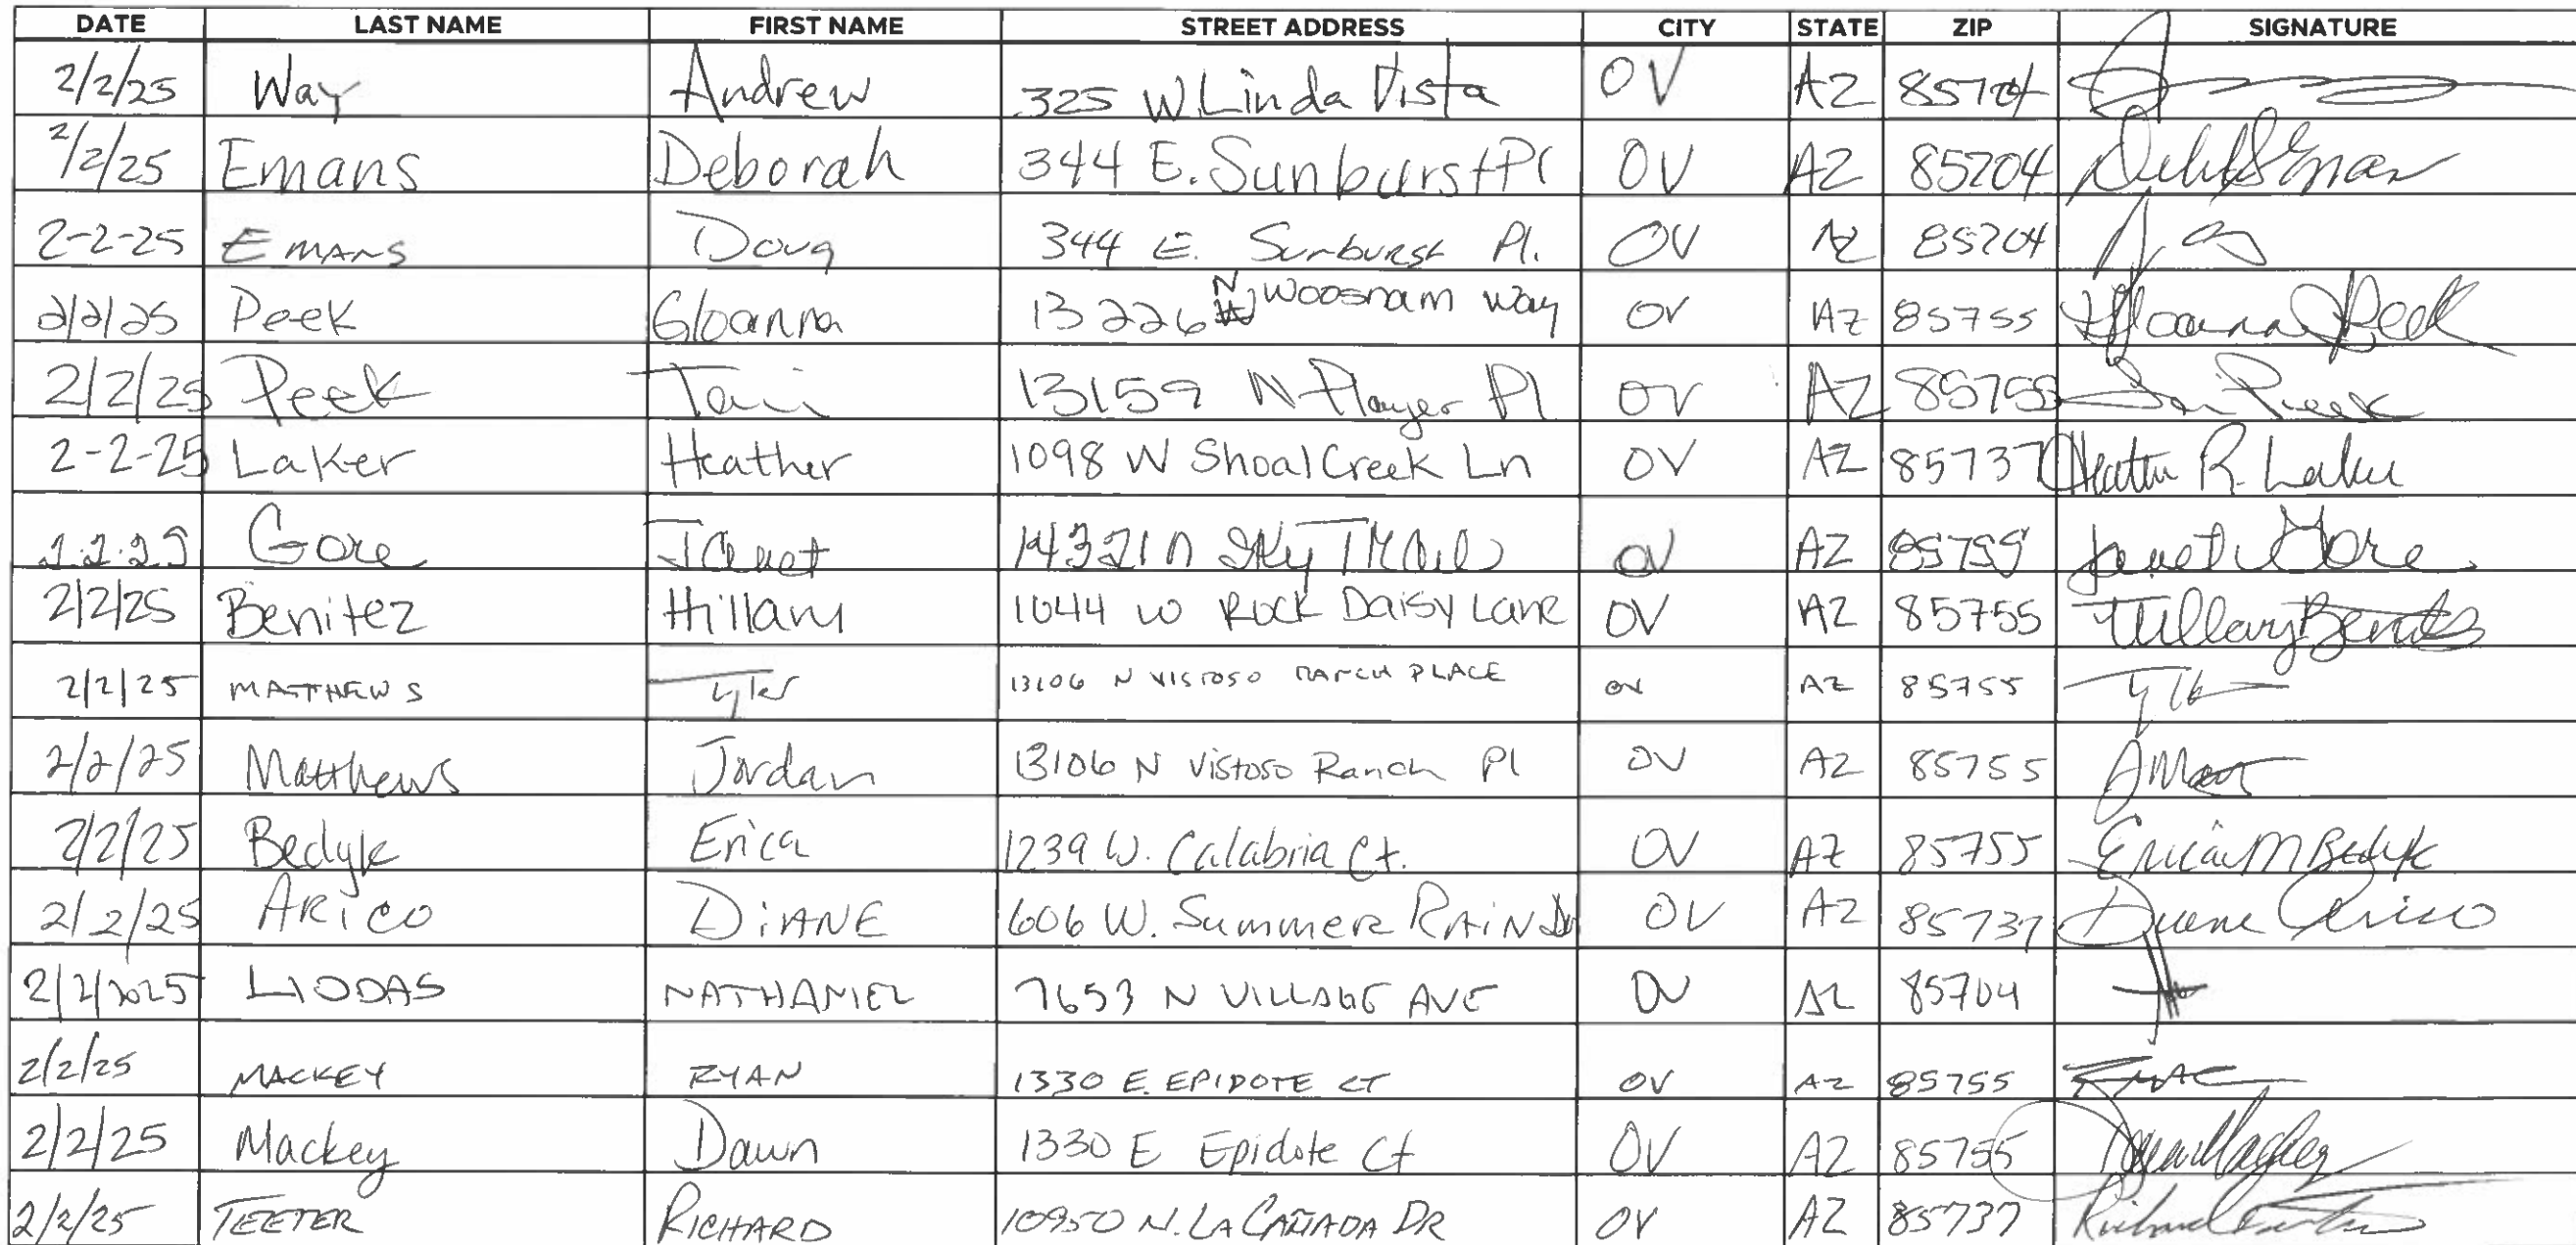 DATE LAST NAME FIRST NAME STREET ADDRESS CITY STATE ZIP SIGNATURE
2/2/25 Way Andrew 325 W. Linda Vista OV AZ 85704
2/2/25 Emans Deborah 344 E. Sunburst Pl OV AZ 85704
2-2-25 Emans Doug 344 E. Sunburst Pl. OV AZ 85704
2/2/25 Peek Gloanna 13226 N Woosnam Way OV AZ 85755 Gloanna Peek
2/2/25 Peek 13159 N Player Pl OV AZ 85755 Peek
2-2-25 Laker Heather 1098 W Shoal Creek Ln OV AZ 85737 Heather R. Laker
2.2.25 Gore Janet 14321 N Sky Trail OV AZ 85755 Janet Gore
2/2/25 Benitez Hillary 1044 W Rock Daisy Lane OV AZ 85755 Hillary Benitez
2/2/25 MATTHEWS Tyler 13106 N VISTOSO RANCH PLACE OV AZ 85755
2/2/25 Matthews Jordan 13106 N Vistoso Ranch Pl OV AZ 85755
2/2/25 Bedyk Erica 1239 W. Calabria Ct. OV AZ 85755 Erica M Bedyk
2/2/25 ARICO DIANE 606 W. Summer RAIN Dr OV AZ 85737 Diane Arico
2/2/2025 LIODAS NATHANIEL 7653 N VILLAGE AVE OV AZ 85704
2/2/25 MACKEY RYAN 1330 E. EPIDOTE CT OV AZ 85755
2/2/25 Mackey Dawn 1330 E Epidote Ct OV AZ 85755 Dawn Mackey
2/2/25 TEETER RICHARD 10950 N. LA CAÑADA DR OV AZ 85737 Richard Teeter